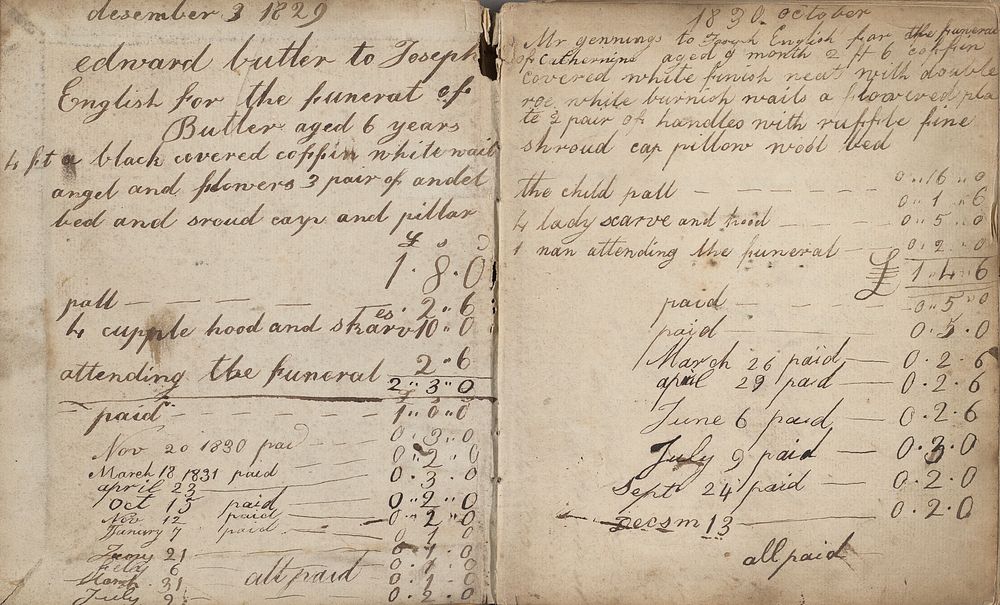 desember 3 1829
edward butler to Joseph
English for the funeral of
Butler aged 6 years
4 ft a black covered coffin white nail
angel and flowers 3 pair of andel
bed and sroud cap and pillar
£ s D
1 . 8 . 0
pall — — — — 2 " 6
4 cupple hood and skarves. 10 " 0
attending the funeral 2 " 6
2 " 3 " 0
paid — — — — 1 " 0 " 0
0 . 3 . 0
Nov 20 1830 paid — — 0 " 2 " 0
March 18 1831 paid 0 . 3 . 0
april 23
Oct 15 paid 0 " 2 " 0
Nov 12 paid 0 " 2 " 0
January 7 paid 0 1 0
21 0 . 1 . 0
6 0 . 1 . 0
March 31 0 . 1 . 0
July 9 0 . 2 . 0
all paid
1830 october
Mr gennings to Joseph English for the funeral
of Cathernine aged 9 month 2 ft 6 coffin
covered white finish neat with double
roe white burnish nails a flowered pla
te 2 pair of handles with ruffle fine
shroud cap pillow wool bed
0 " 16 " 0
the child pall — — — 0 " 1 " 6
4 lady scarve and hood — 0 " 5 " 0
1 man attending the funeral — 0 " 2 " 0
£ 1 " 4 " 6
paid — 0 " 5 " 0
paid — 0 . 5 . 0
March 26 paid — 0 . 2 . 6
april 29 paid — 0 . 2 . 6
June 6 paid — 0 . 2 . 6
July 9 paid — 0 . 3 . 0
Sept 24 paid — 0 . 2 . 0
Decsm 13 — 0 . 2 . 0
all paid